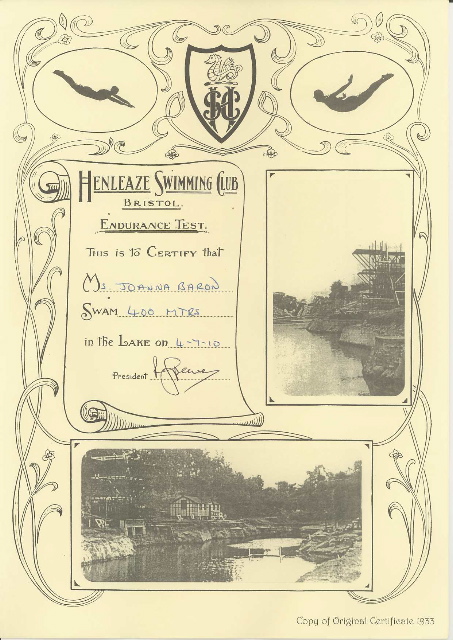 HSC
HENLEAZE SWIMMING CLUB
BRISTOL.
ENDURANCE TEST.
THIS IS to CERTIFY that
Ms JOANNA BARON
SWAM 400 MTRS
in the LAKE on 4-7-10
President
Copy of Original Certificate 1933